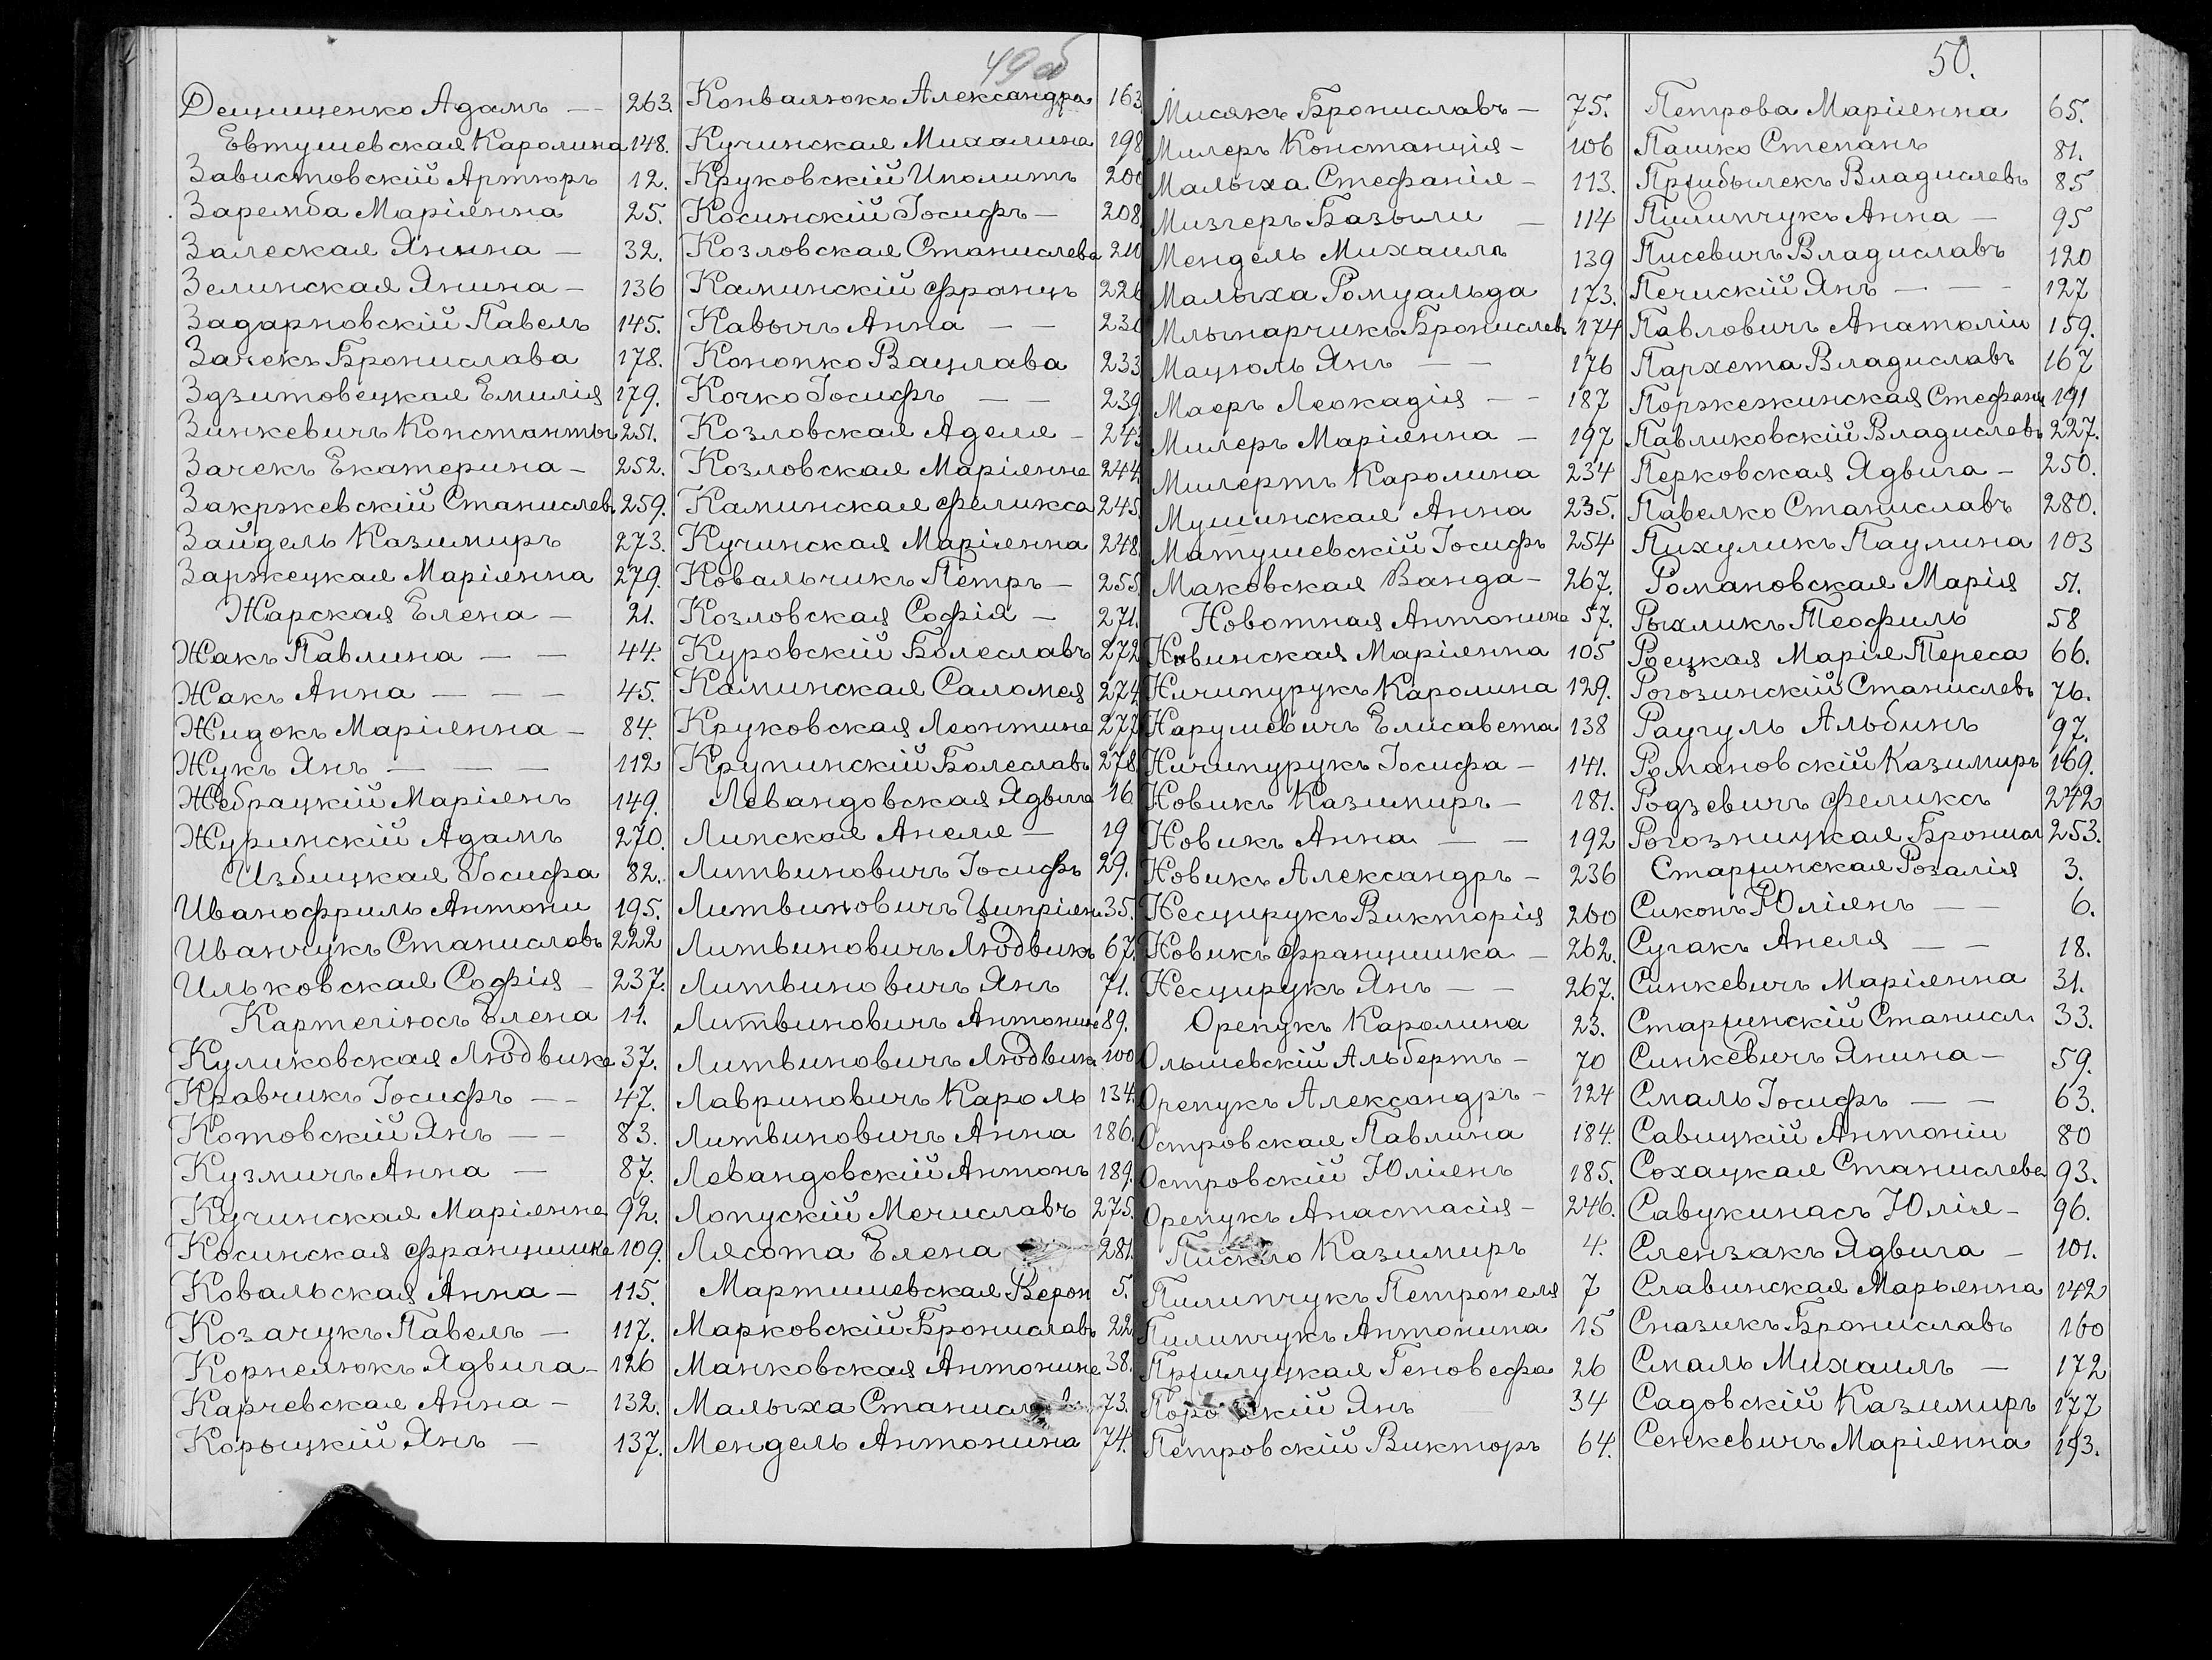 49 об
Дещищенко Адамъ — 263.
Евтушевская Каролина 148.
Завистовскій Артюръ 12.
Заремба Маріянна 25.
Залеская Янина — 32.
Зелинская Янина — 136
Задарновскій Павелъ 145.
Зачекъ Бронислава 178.
Здзитовецкая Емилія 179.
Зинкевичъ Константы 251.
Зачекъ Екатерина — 252.
Закржевскій Станиславъ 259.
Зайдель Казимиръ 273.
Заржецкая Маріянна 279.
Жарская Елена — 21.
Жакъ Павлина — — 44.
Жакъ Анна — — — 45.
Жидокъ Маріянна — 84.
Жукъ Янъ — — — 112
Жебрацкій Маріянъ 149.
Журинскій Адамъ 270.
Избицкая Іосифа 82.
Иванофриль Антони 195.
Иванчукъ Станиславъ 222
Ильковская Софія — 237.
Картечіюсъ Елена 11.
Куликовская Людвика 37.
Кравчикъ Іосифъ — — 47.
Котовскій Янъ — — 83.
Кузмичъ Анна — 87.
Кучинская Маріянна 92.
Косинская Францишка 109.
Ковальская Анна — 115.
Козачукъ Павелъ — 117.
Корнелюкъ Ядвига — 126
Карчевская Анна — 132.
Корыцкій Янъ — 137.
Конвалюкъ Александра 163.
Кучинская Михалина 198
Круковскій Иполитъ 200
Косинскій Іосифъ — 208.
Козловская Станислава 210
Каминскій Францъ 226
Кавычъ Анна — — 230
Конопко Вацлава 233
Кочко Іосифъ — — 239.
Козловская Аделя — 243
Козловская Маріянна 244
Каминская Феликса 245.
Кучинская Маріянна 248
Ковальчикъ Петръ — 255
Козловская Софія — 271.
Куровскій Болеславъ 272
Каминская Саломея 274
Круковская Леонтина 277
Крупинскій Болеславъ 278.
Левандовская Ядвига 16
Липская Анеля — 19
Литвиновичъ Іосифъ 29.
Литвиновичъ Ципріянъ 35.
Литвиновичъ Людвикъ 67.
Литвиновичъ Янъ 71.
Литвиновичъ Антонина 89.
Литвиновичъ Людвика 100
Лавриновичъ Кароль 134.
Литвиновичъ Анна 186.
Левандовскій Антонъ 189.
Лопускій Мечиславъ 275.
Лясота Елена 281.
Мартишевская Верон 5.
Марковскій Брониславъ 22
Манковская Антонина 38.
Малыха Станисл 73.
Мендель Антонина 74.
50.
Мисякъ Брониславъ — 75.
Милеръ Констанція — 106
Малыха Стефанія — 113.
Мизгеръ Базыли — 114
Мендель Михаилъ 139
Малыха Ромуальда 173.
Млынарчикъ Брониславъ 174
Мацюль Янъ — — 176
Маеръ Леокадія — — 187
Милеръ Маріянна — 197
Милертъ Каролина 234
Мушинская Анна 235.
Матушевскій Іосифъ 254
Маковская Ванда — 267.
Новотная Антонина 57.
Новинская Маріянна 105
Ничипурукъ Каролина 129.
Нарушевичъ Елисавета 138
Ничипурукъ Іосифа — 141.
Новикъ Казимиръ — 181.
Новикъ Анна — — 192
Новикъ Александръ — 236
Несцирукъ Викторія 260
Новикъ Францишка — 262.
Несцирукъ Янъ — — 267.
Орепукъ Каролина 23.
Ольшевскій Альбертъ — 70
Орепукъ Александръ — 124
Островская Павлина 184.
Островскій Юліянъ 185.
Орепукъ Анастасія — 246.
Пискло Казимиръ 4.
Пилипчукъ Петронеля 7
Пилипчукъ Антонина 15
Прилуцкая Геновефа 26
Поро скій Янъ 34
Петровскій Викторъ 64.
Петрова Маріянна 65.
Пашко Степанъ 81.
Прибылекъ Владиславъ 85
Пилипчукъ Анна — 95
Писевичъ Владиславъ 120
Печискій Янъ — — — 127
Павловичъ Анатоліи 159.
Пархета Владиславъ 167
Поржежинская Стефанія 191
Павликовскій Владиславъ 227.
Перковская Ядвига — 250.
Павелко Станиславъ 280.
Пихуликъ Паулина 103
Романовская Марія 51.
Рыхликъ Теофиль 58
Роецкая Марія Тереса 66.
Рогозинскій Станиславъ 76.
Раугуль Альбинъ 97.
Романовскій Казимиръ 169.
Родзевичъ Феликсъ 242
Рогозницкая Бронисл 253.
Старжинская Розалія 3.
Сиконъ Юліянъ — — 6.
Сугакъ Анеля — — 18.
Синкевичъ Маріянна 31.
Старжинскій Станисл 33.
Синкевичъ Янина — 59.
Смаль Іосифъ — — 63.
Савицкій Антоніи 80
Сохацкая Станислава 93.
Савукинасъ Юлія — 96.
Слензакъ Ядвига — 101.
Славинская Марьянна 142
Сназикъ Брониславъ 160
Смаль Михаилъ — 172
Садовскій Казимиръ 177
Сенкевичъ Маріянна 193.